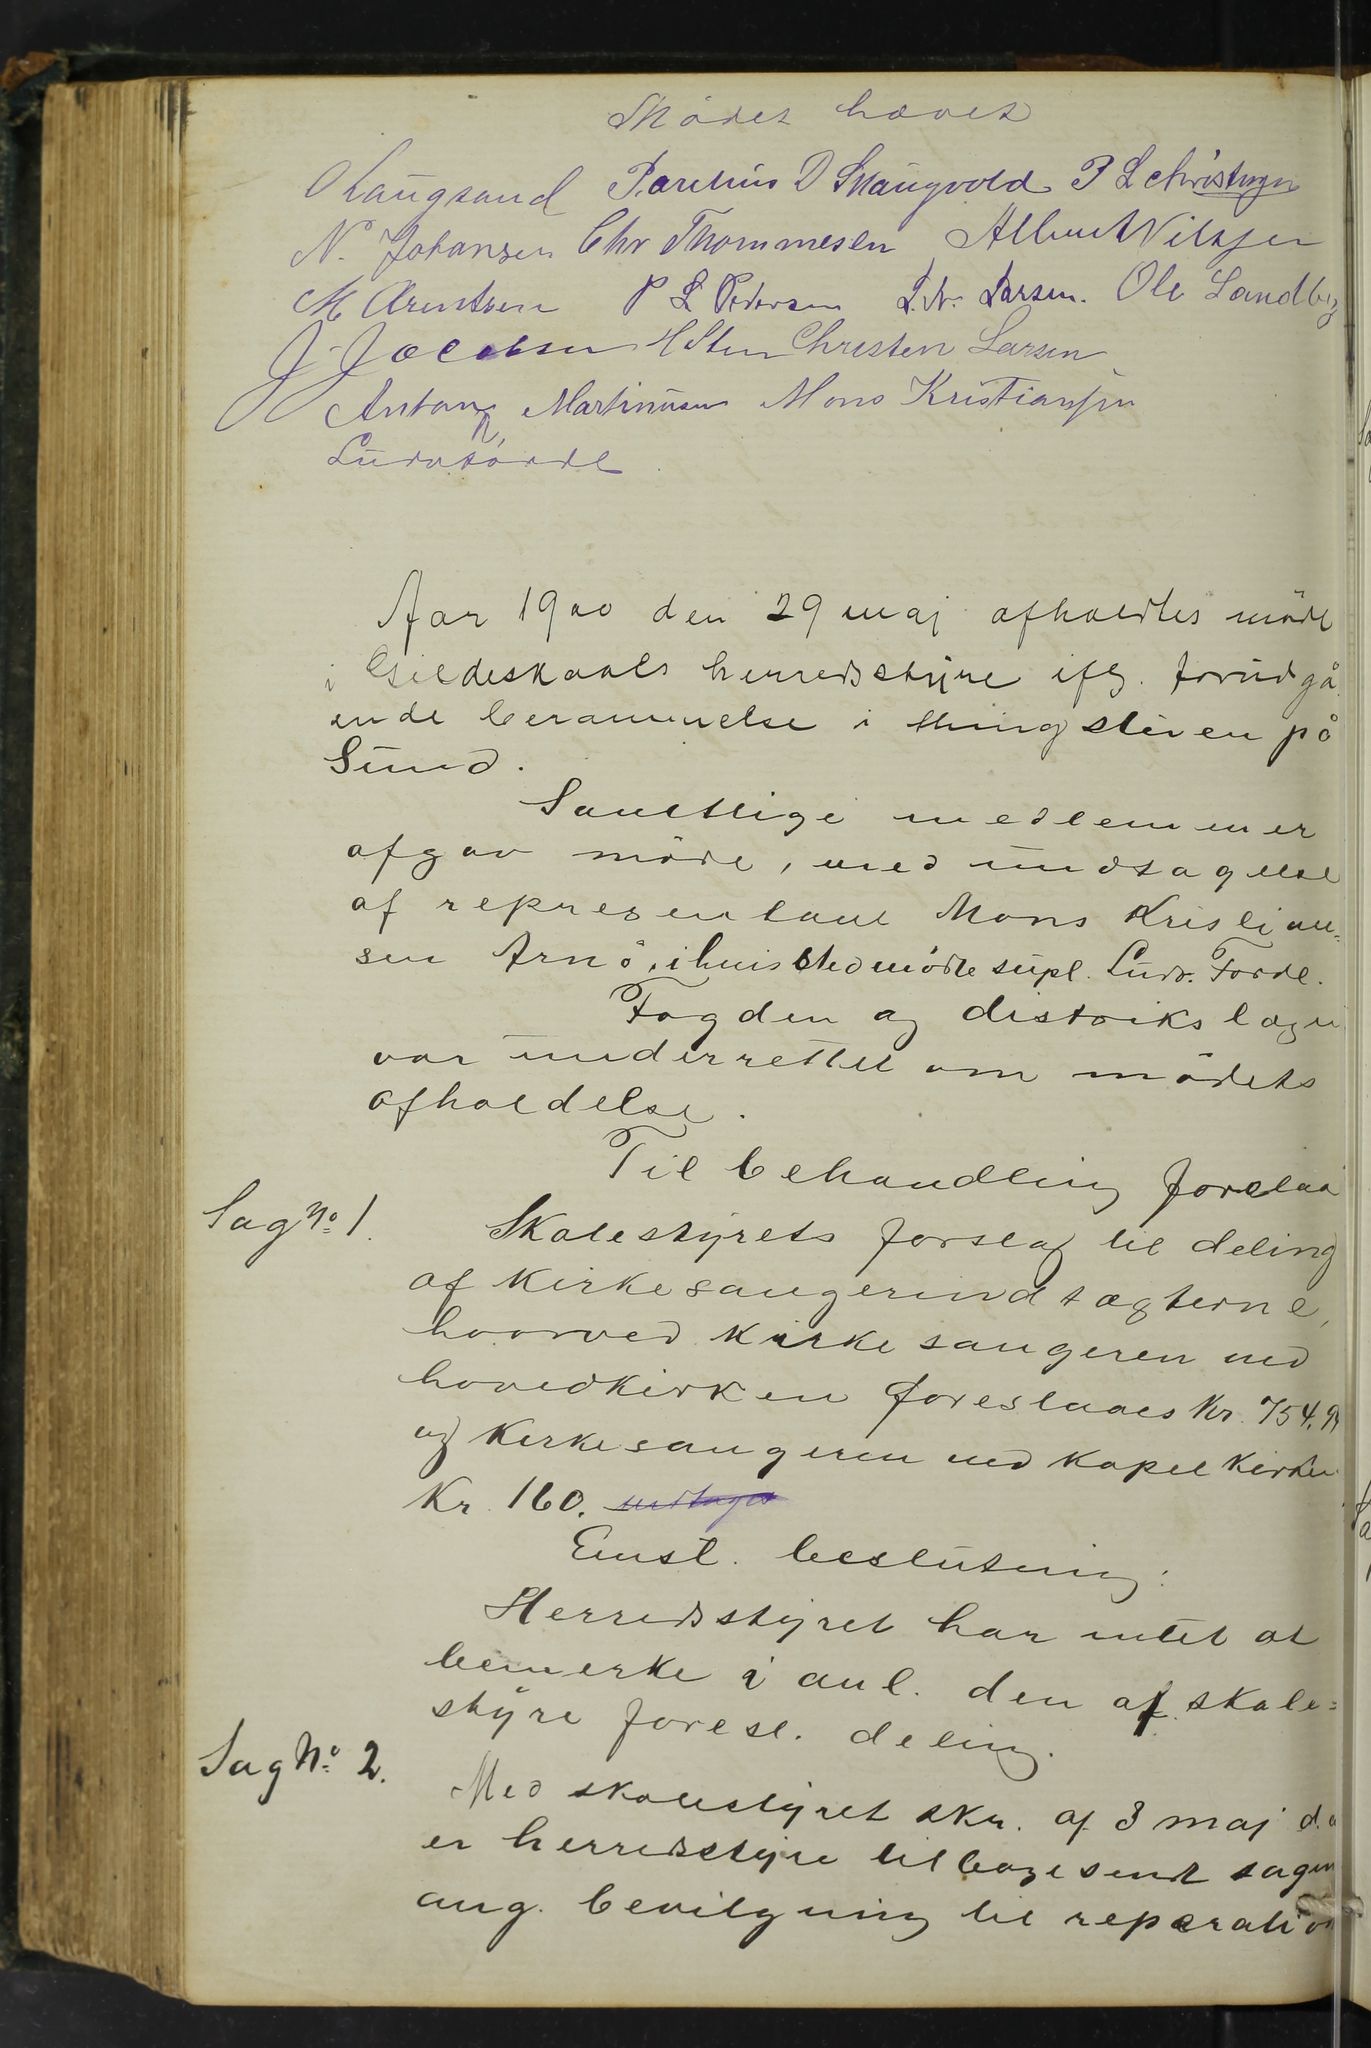 Mødet hævet
O Laugsand Parelius D Skaugvold P L Christensen
N. Johansen Chr Thommesen Albert Nilsen
M Arentsen P L Pedersen L. N. Larsen. Ole Sandberg
J. Jacobsen H Sten Christen Larsen
Anton Martinusen Mons Kristiansen
Ludv Førde
Aar 1900 den 29 maj afholdtes møde
i Gildeskaals herredsstyre iflg. forudgå
ende berammelse i thingstuen på
Sund.
Samtlige medlemmer
afgav møde, med undtagelse
af representant Mons Kristian=
sen Arnö, i hvis sted mødte supl. Ludv. Førde.
Fogden og distrikslægen
var underrettet om mödets
afholdelse.
Til behandling forelaa
Sag No. 1.
Skolestyrets forslag til deling
af kirkesangerindtægterne,
hvorved kirkesangeren ved
hovedkirken foreslaaes Kr. 754.94
og kirkesangeren ved kapelkirken
Kr 160. undtages
Enst. beslutning:
Herredsstyret har intet at
bemerke i anl. den af skole=
styre foresl. deling.
Sag No. 2.
Med skolestyret skr. af 3 maj d. a
er herredsstyre tilbagesendt sagen
ang. bevilgning til reparation